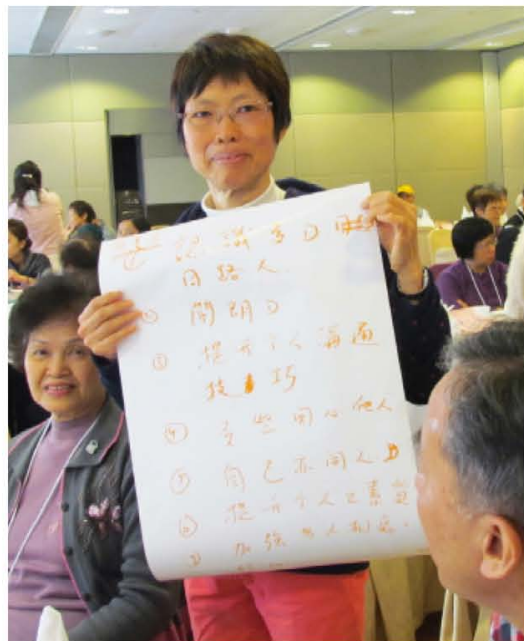 ① 認識多D
同路人
② 開朗D
③ 提升个人溝通
技巧
④ 多些関心他人
⑤ 自己亦開心D
⑥ 提升个人之素質
⑦ 加強與人相處